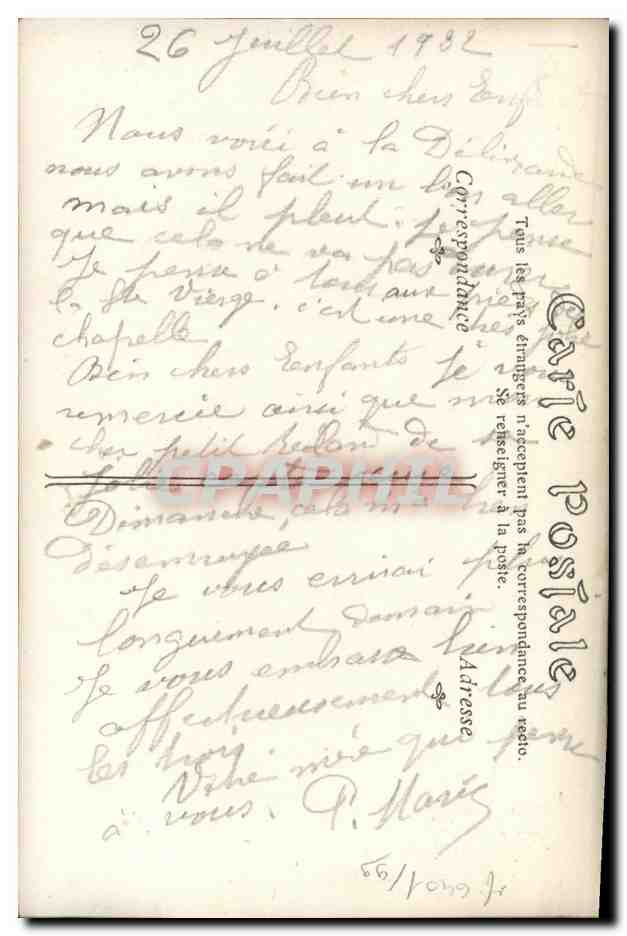 26 Juillet 1932
Bien chers Enf
Nous voici à la Délivrande
nous avons fait un bon aller
mais il pleut. je pense
que cela ne va pas
Je pense à tous aux pieds de
la Ste Vierge. c'est une très jolie
chapelle
Bien chers Enfants je vous
remercie ainsi que mon
cher petit de
Dimanche, cela m'a
désennuyée
Je vous écrirai plus
longuement demain
Je vous embrasse bien
affectueusement tous
les trois.
Votre mère que pense
à vous. P. Marie
Carte Postale
Tous les pays étrangers n'acceptent pas la correspondance au recto.
Se renseigner à la poste.
Correspondance
Adresse
CPAPHIL